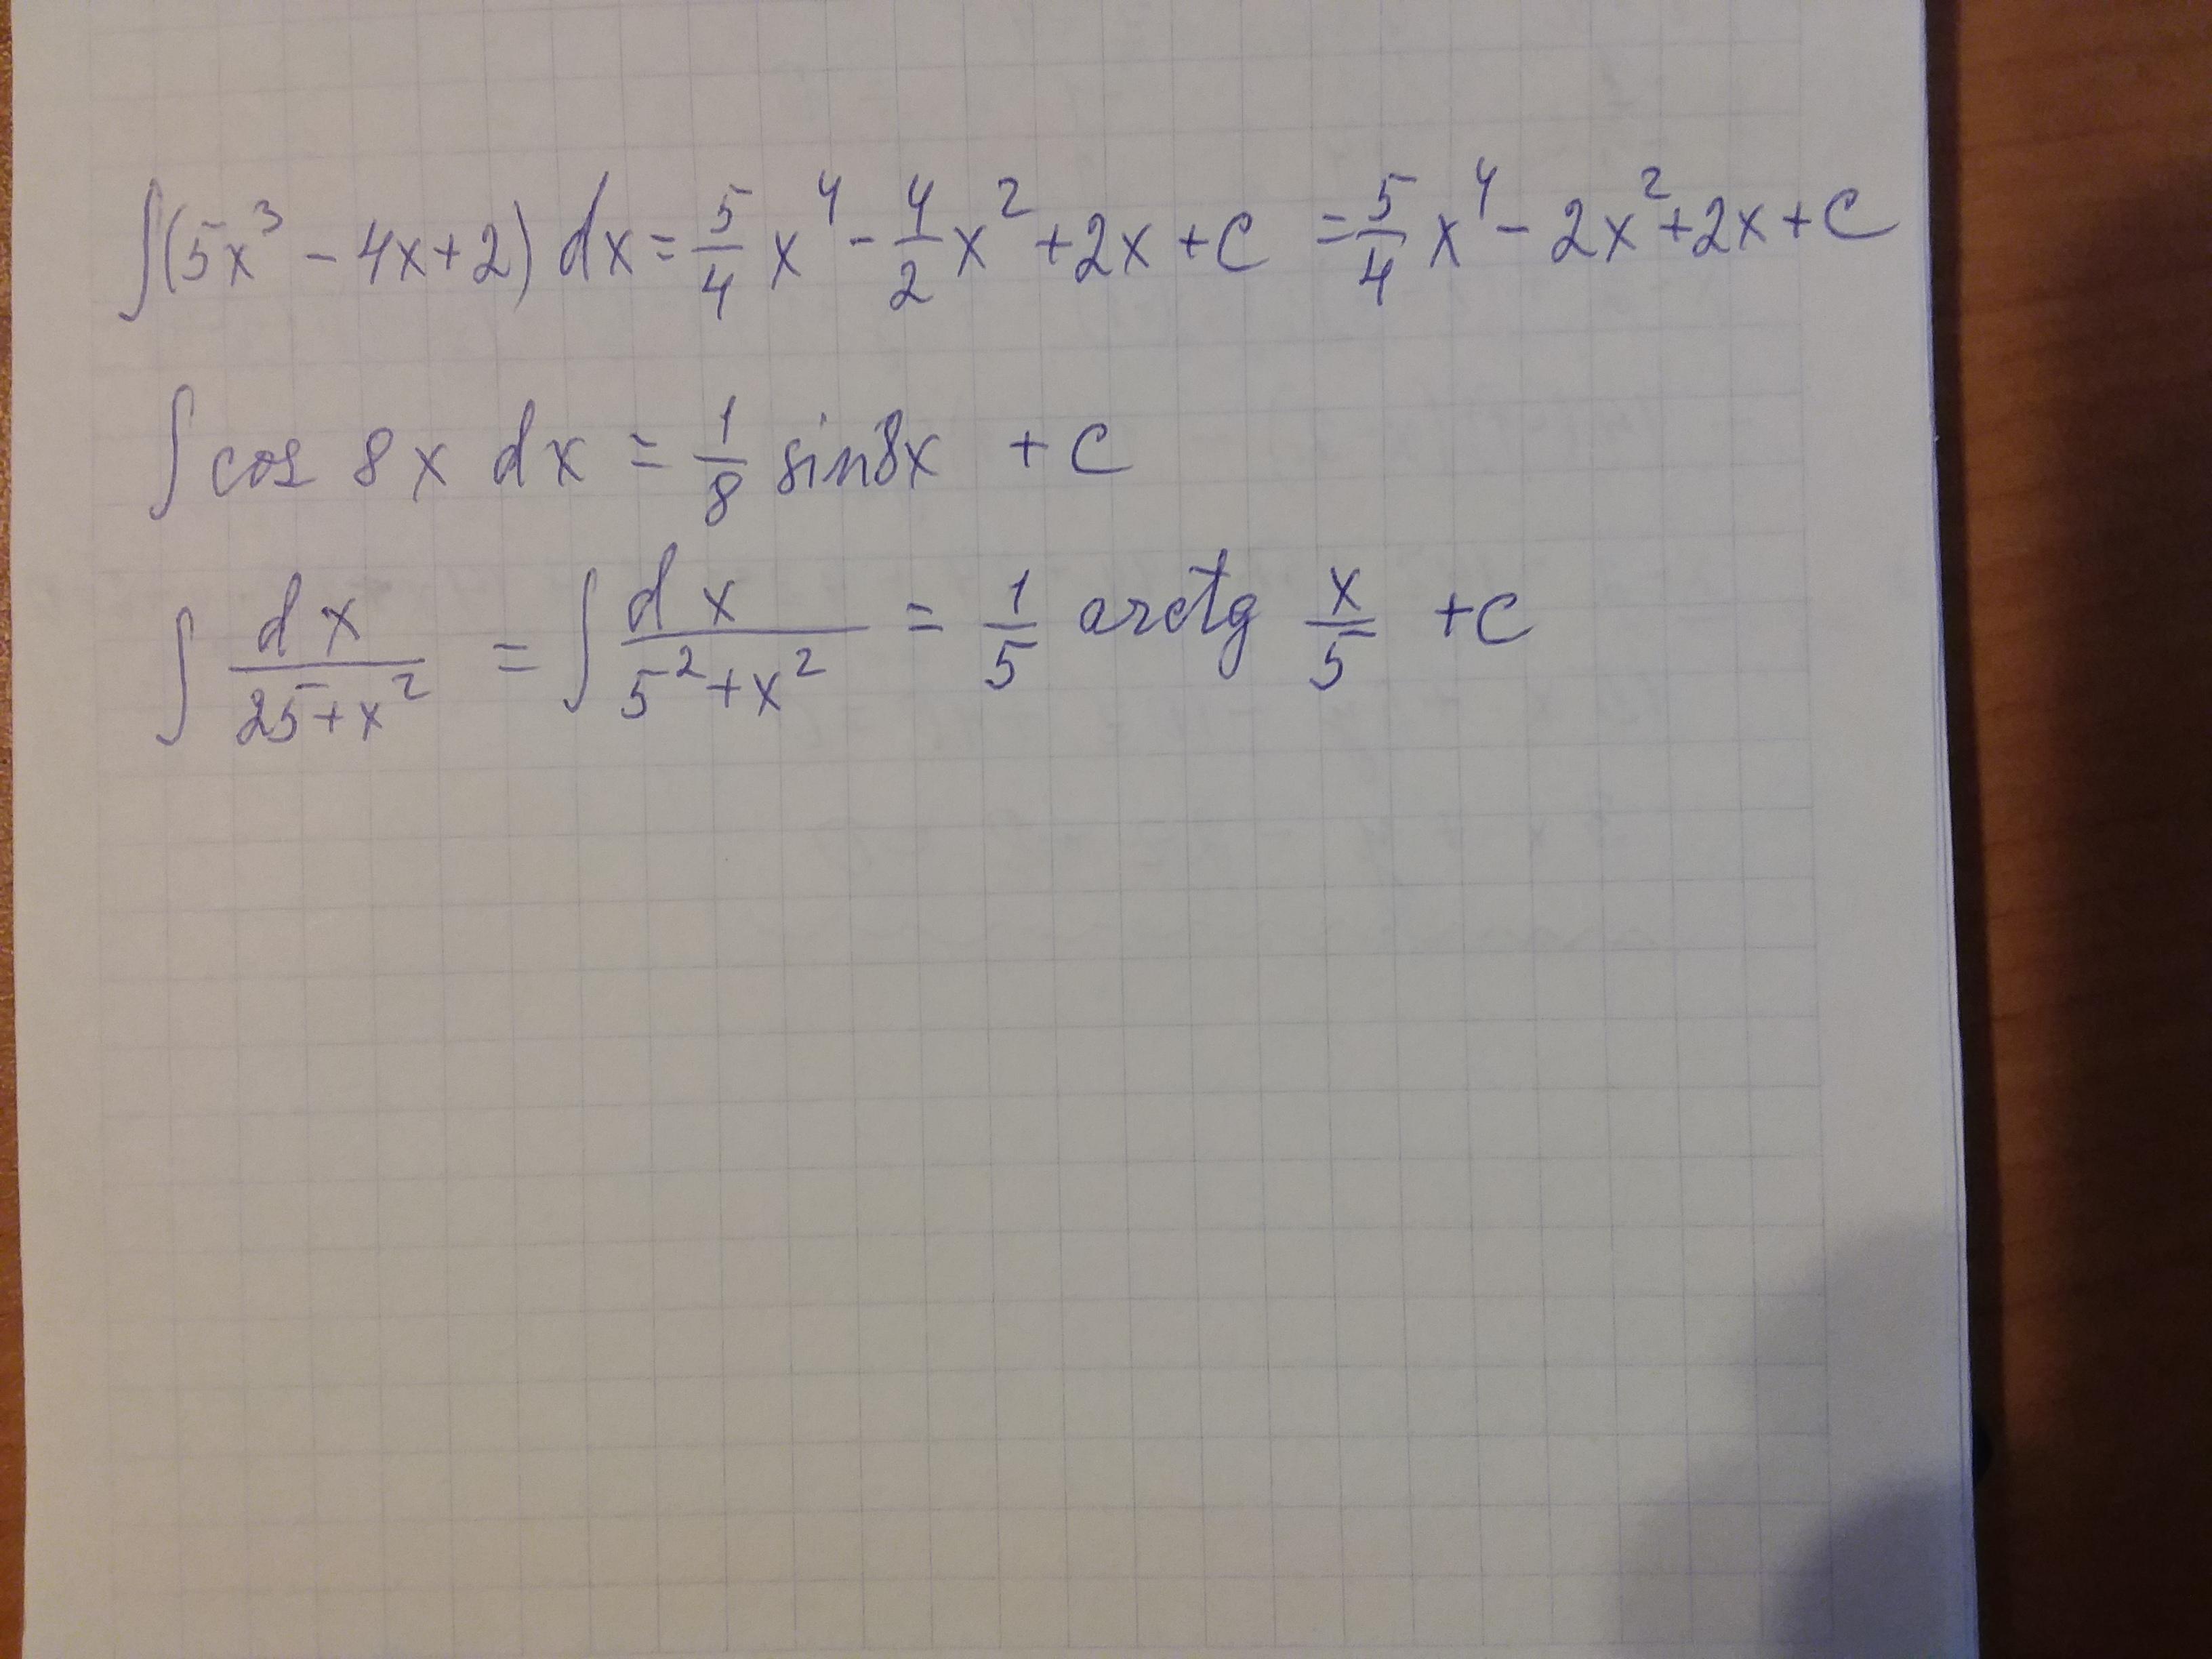 ∫(5x³ - 4x+2) dx = 5/4 x⁴ - 4/2 x² + 2x + C = 5/4 x⁴ - 2x² + 2x + C
∫ cos 8x dx = 1/8 sin8x + C
∫ dx/(25+x²) = ∫ dx/(5²+x²) = 1/5 arctg x/5 + C